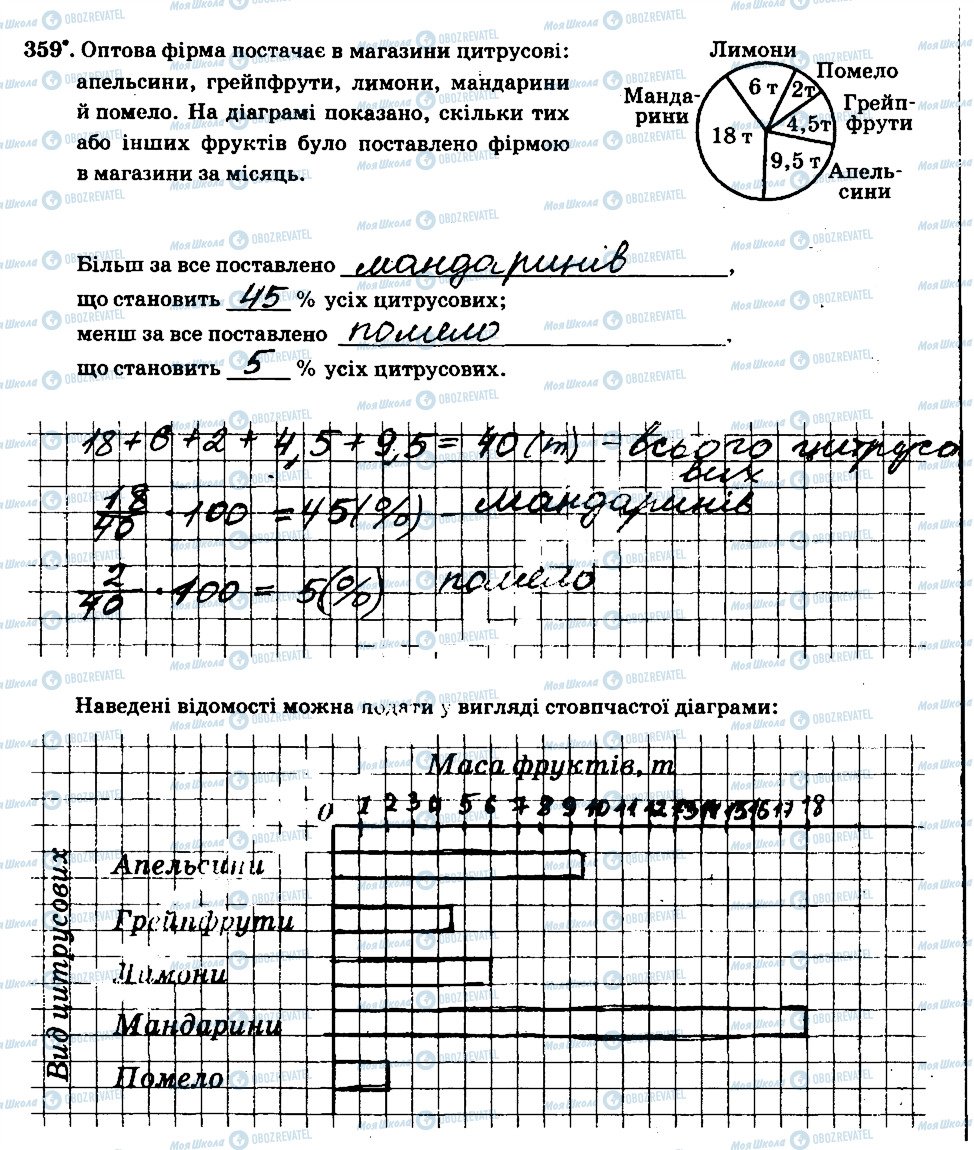 359°. Оптова фірма постачає в магазини цитрусові:
апельсини, грейпфрути, лимони, мандарини
й помело. На діаграмі показано, скільки тих
або інших фруктів було поставлено фірмою
в магазини за місяць.
Лимони
Помело
Манда-
рини
Грейп-
фрути
Апель-
сини
6 т
2т
4,5т
18 т
9,5 т
Більш за все поставлено мандаринів,
що становить 45 % усіх цитрусових;
менш за все поставлено помело,
що становить 5 % усіх цитрусових.
18 + 6 + 2 + 4,5 + 9,5 = 40 (т) – всього цитрусо
вих
18/40 · 100 = 45 (%) – мандаринів
2/40 · 100 = 5 (%) помело
Наведені відомості можна подати у вигляді стовпчастої діаграми:
Маса фруктів, т
0 1 2 3 4 5 6 7 8 9 10 11 12 13 14 15 16 17 18
Вид цитрусових
Апельсини
Грейпфрути
Лимони
Мандарини
Помело
Моя Школа OBOZREVATEL